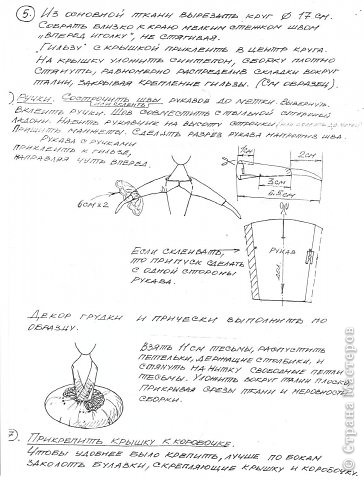 5. Из основной ткани вырезать круг Ø 17см.
Собрать близко к краю мелким стежком швом
„вперед иголку", не стягивая.
„Гильзу" с крышкой приклеить в центр круга.
На крышку уложить синтепон, сборку плотно
стянуть, равномерно распределив складки вокруг
талии, закрывая крепление гильзы. (См образец).
) Ручки. Состročить швы рукавов до метки. Вывернуть.
Вклеить ручки. Шов совместить с тыльной стороной
ладони. Набить рукавчик на высоту строчки,
Пришить манжеты. Сделать разрез рукава напротив шва.
Рукава с ручками
приклеить к гильзе,
направляя чуть вперед.
1см
2см
3см
6,5см
6см х 2
Если склеивать,
то припуск сделать
с одной стороны
рукава.
Рукав
Декор грудки и прически выполнить по
образцу.
Взять 11см тесьмы, распустить
петельки, держащие столбики, и
стянуть на нитку свободные петли
тесьмы. Уложить вокруг талии плоско,
прикрывая срезы ткани и неровность
сборки.
7). Прикрепить крышку к коробочке.
Чтобы удобнее было крепить, лучше по бокам
заколоть булавки, скрепляющие крышку и коробочку.
© Страна Мастеров